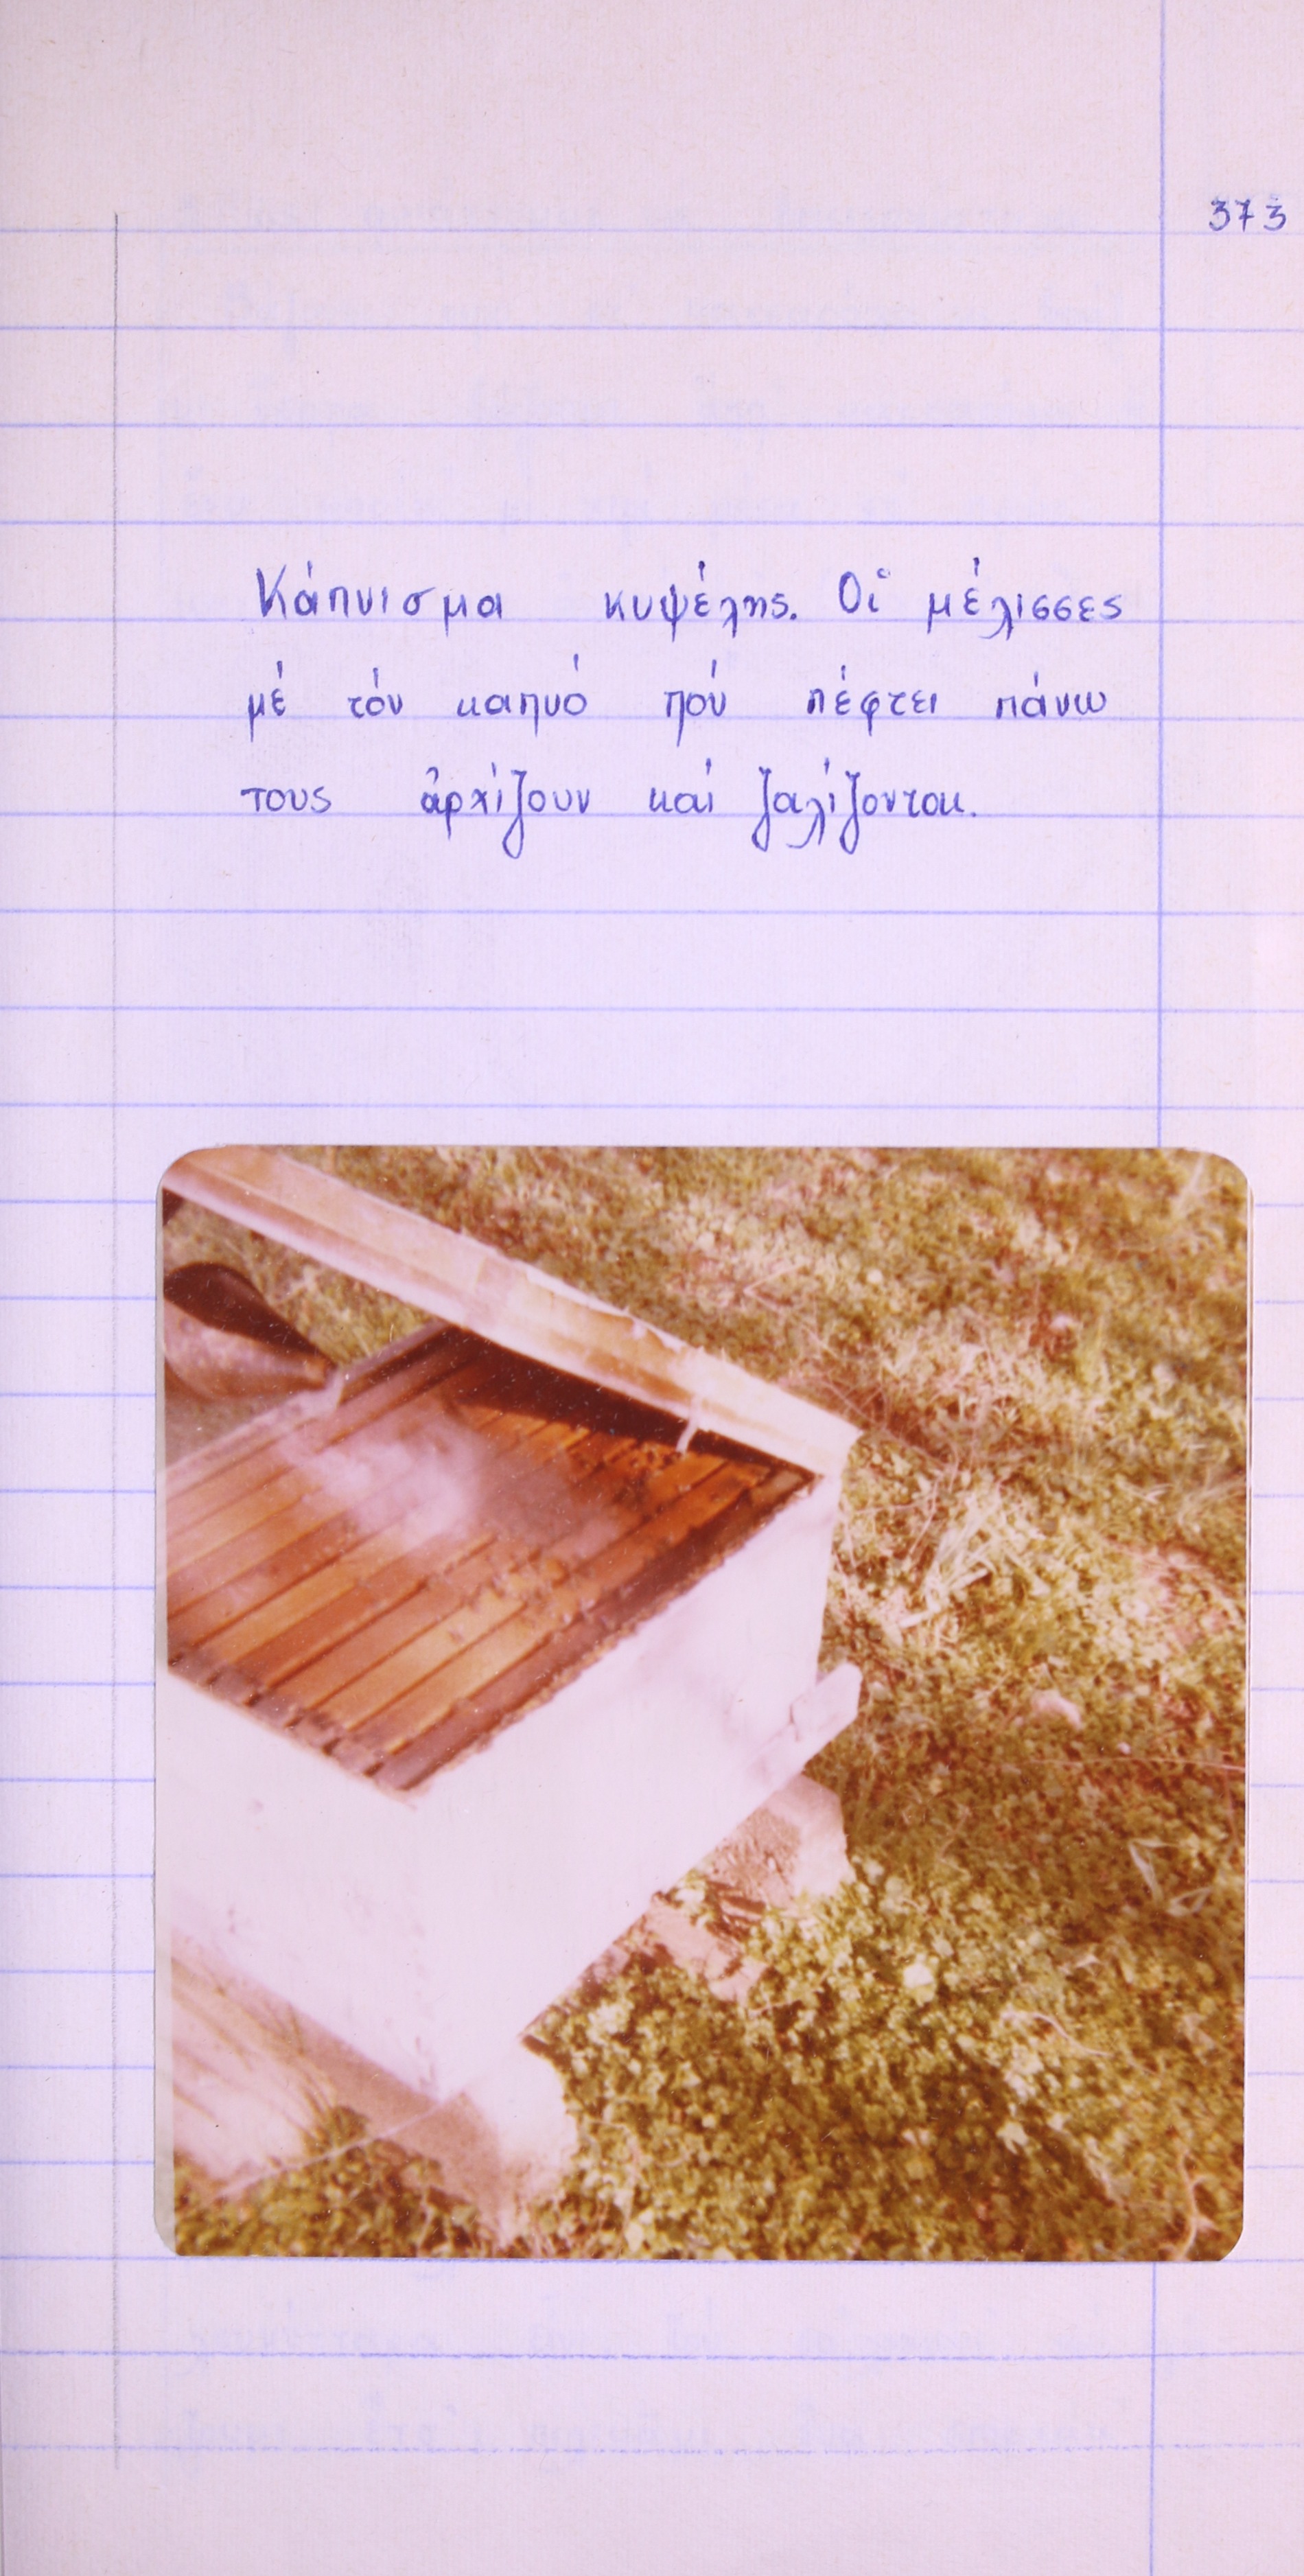 373
Κάπνισμα κυψέλης. Οἱ μέλισσες
μέ τόν καπνό πού πέφτει πάνω
τους ἀρχίζουν καί ζαλίζονται.